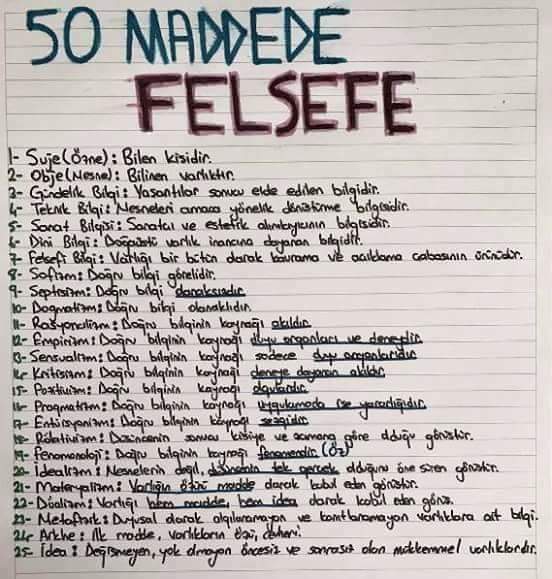 50 MADDEDE
FELSEFE
1- Suje(Özne): Bilen kişidir.
2- Obje(Nesne): Bilinen varlıktır.
3- Gündelik Bilgi: Yaşantılar sonucu elde edilen bilgidir.
4- Teknik Bilgi: Nesneleri amaca yönelik dönüştürme bilgisidir.
5- Sanat Bilgisi: Sanatçı ve estetik alımlayıcının bilgisidir.
6- Dini Bilgi: Doğaüstü varlık inancına dayanan bilgidir.
7- Felsefi Bilgi: Varlığı bir bütün olarak kavrama ve açıklama çabasının ürünüdür.
8- Sofizm: Doğru bilgi görelidir.
9- Septisizm: Doğru bilgi olanaksızdır.
10- Dogmatizm: Doğru bilgi olanaklıdır.
11- Rasyonalizm: Doğru bilginin kaynağı akıldır.
12- Empirizm: Doğru bilginin kaynağı duyu organları ve deneydir.
13- Sensualizm: Doğru bilginin kaynağı sadece duyu organlarıdır.
14- Kritisizm: Doğru bilginin kaynağı deneye dayanan akıldır.
15- Pozitivizm: Doğru bilginin kaynağı olgulardır.
16- Pragmatizm: Doğru bilginin kaynağı uygulamada işe yararlığıdır.
17- Entüisyonizm: Doğru bilginin kaynağı sezgidir.
18- Rölativizm: Düşüncenin sonucu kişiye ve zamana göre olduğu görüştür.
19- Fenomenoloji: Doğru bilginin kaynağı fenomendir.(ÖZ)
20- İdealizm: Nesnelerin değil, düşüncenin tek gerçek olduğunu öne süren görüştür.
21- Materyalizm: Varlığın özünü madde olarak kabul eden görüştür.
22- Düalizm: Varlığı hem madde, hem idea olarak kabul eden görüş.
23- Metafizik: Duyusal olarak algılanamayan ve kanıtlanamayan varlıklara ait bilgi.
24- Arkhe: İlk madde, varlıkların özü, cevheri.
25- İdea: Değişmeyen, yok olmayan öncesiz ve sonrasız olan mükemmel varlıklardır.